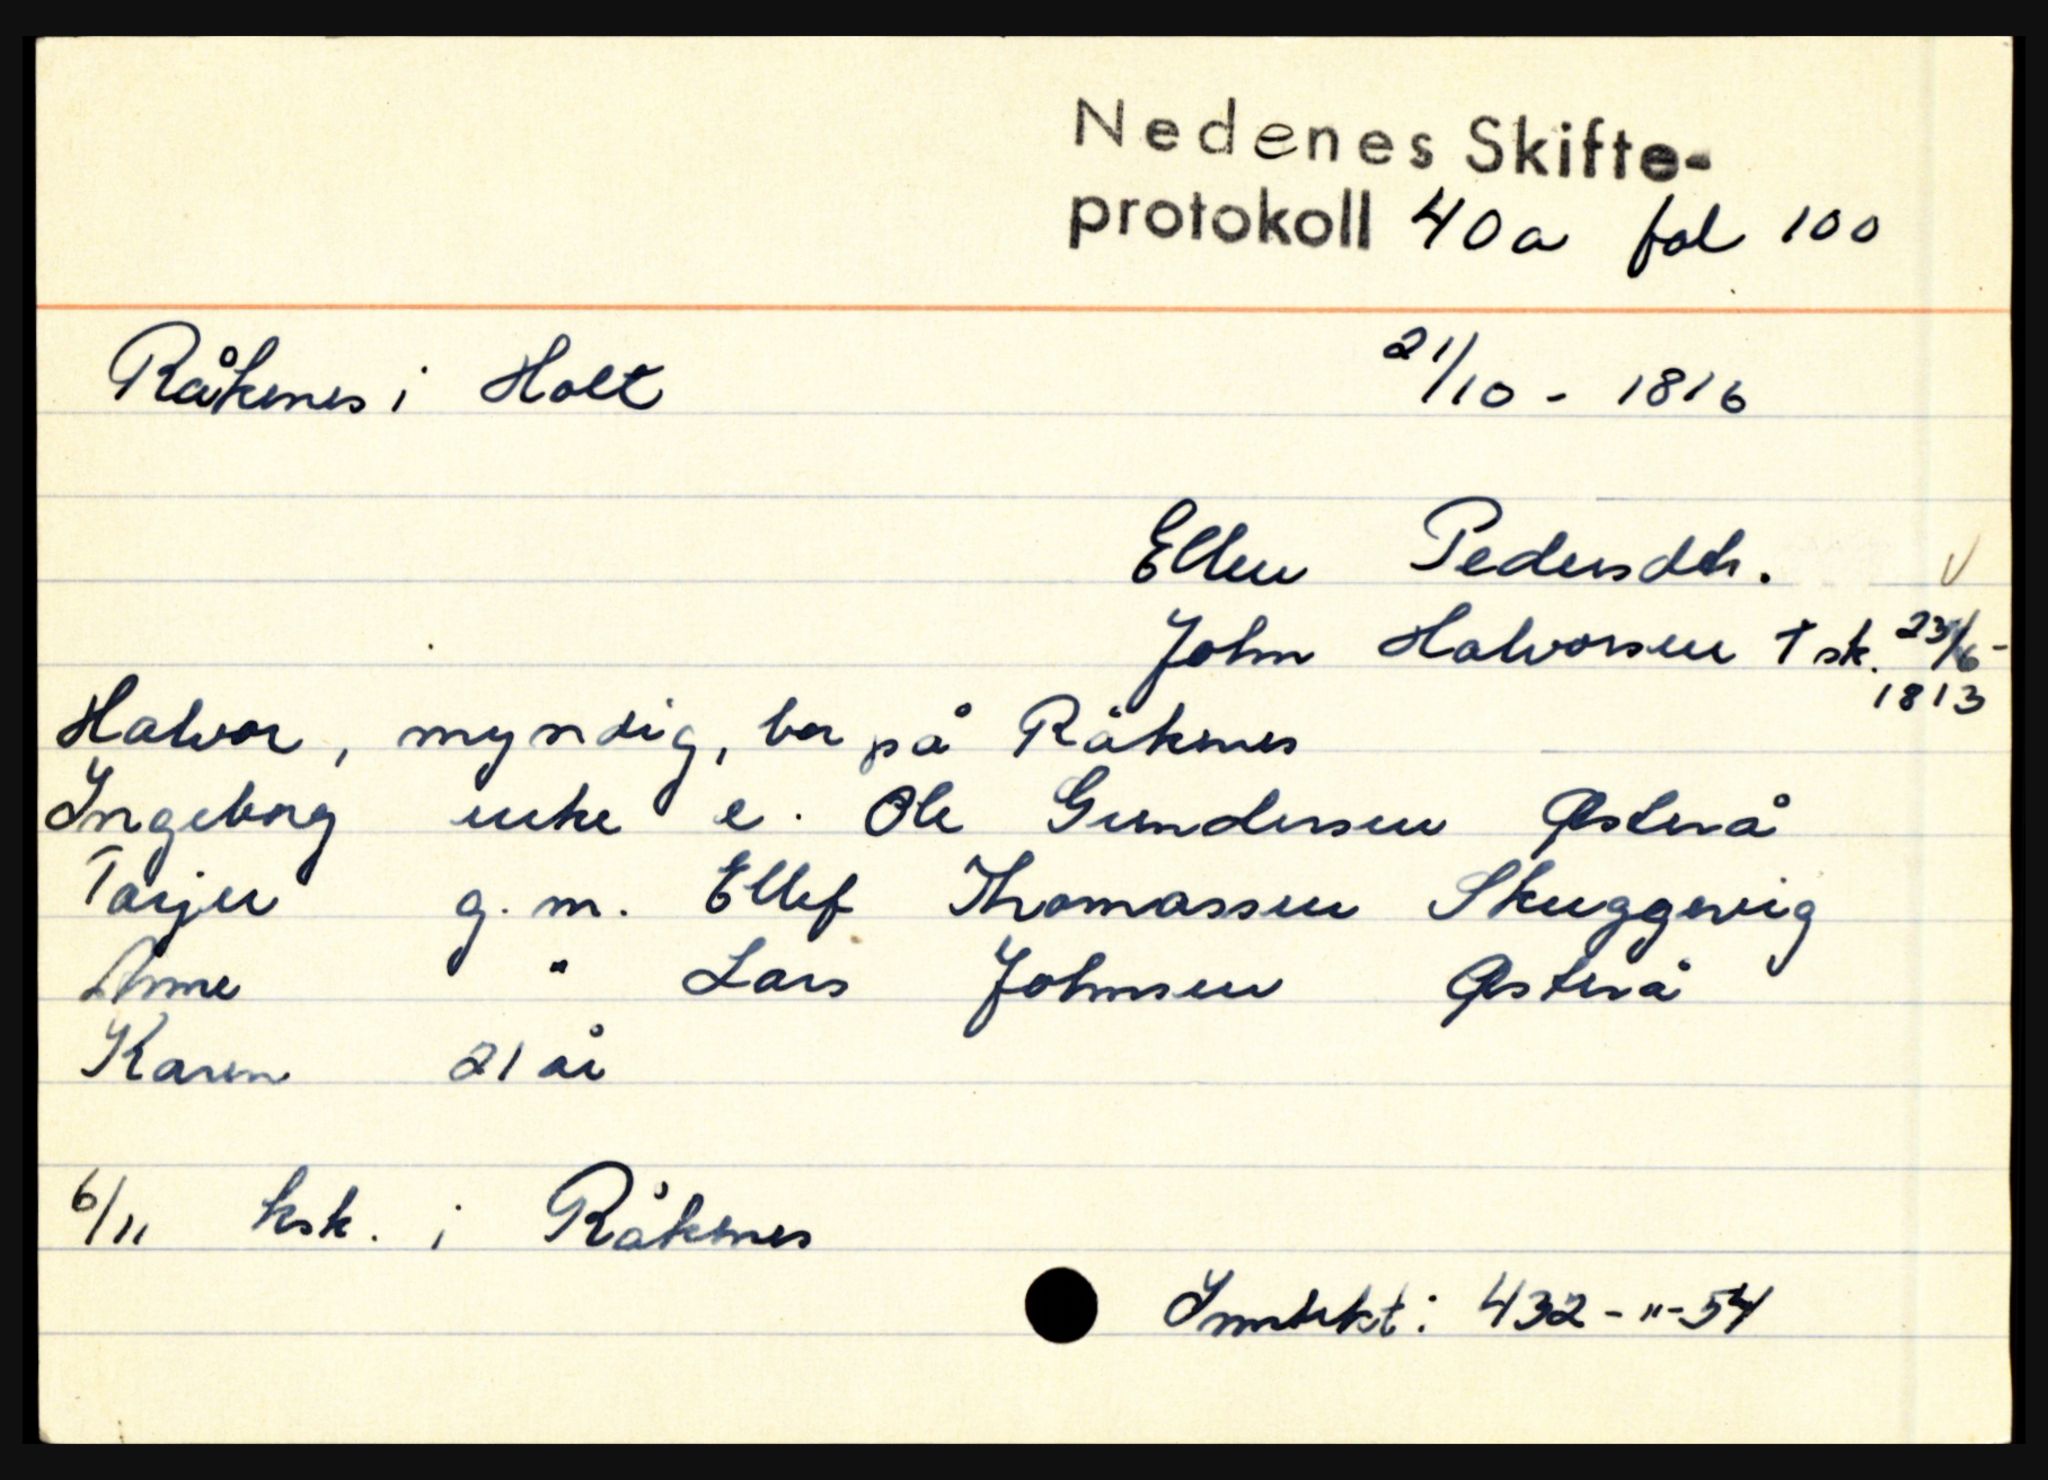 Nedenes Skifte-
protokoll 40a fol 100
Råkenes i Holt 21/10 - 1816
Ellen Pedersdtr.
John Halvorsen † sk. 23/6-
1813
Halvor, myndig, bor på Råkenes
Ingeborg enke e. Ole Gundersen Østerå
Tarjer g. m. Ellef Thomassen Skuggevig
Anne " Lars Johnsen Østerå
Karen 21 år
6/11 ksk. i Råkenes
Inntekt: 432-"-54